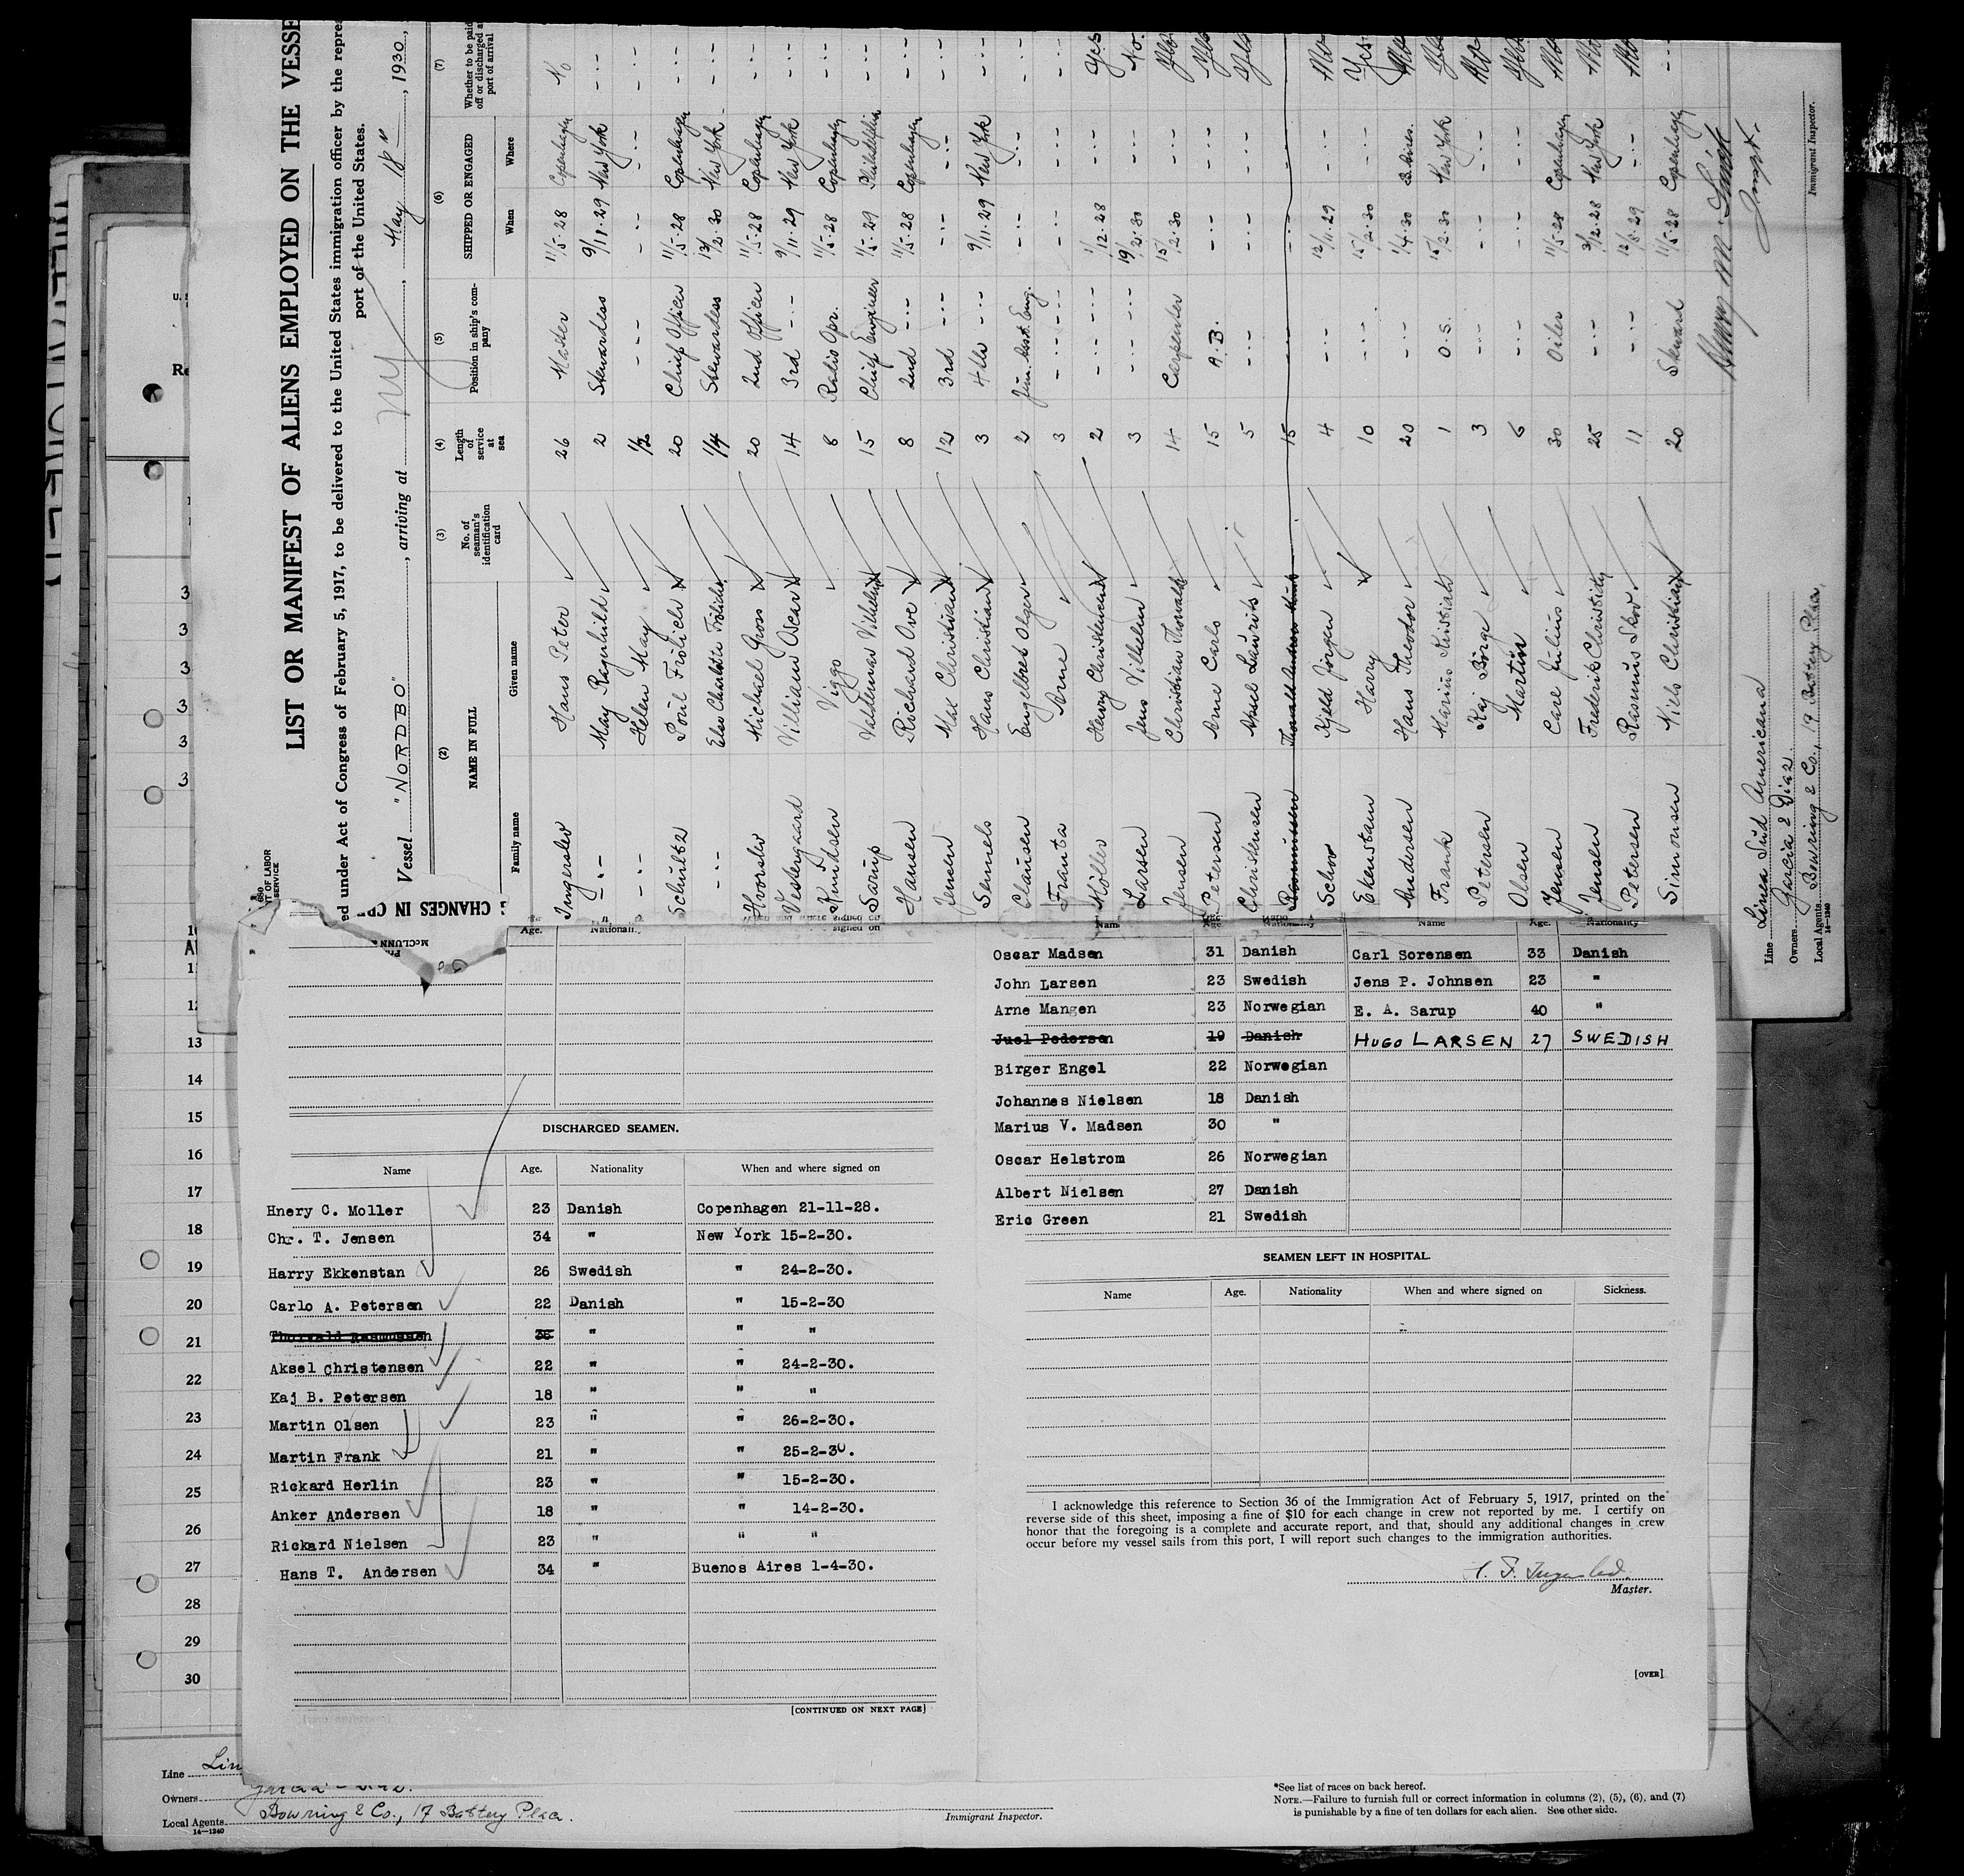 LIST OR MANIFEST OF ALIENS EMPLOYED ON THE VESSE
ed under Act of Congress of February 5, 1917, to be delivered to the United States immigration officer by the repre
port of the United States.
Vessel "NORDBO", arriving at NY, May 18", 1930,
(2) (3) (4) (5) (6) (7)
NAME IN FULL
Family name Given name
No. of seaman's identification card
Length of service at sea
Position in ship's company
SHIPPED OR ENGAGED
When Where
Whether to be paid off or discharged at port of arrival
Ingerslev Hans Peter 26 Master 11/5-28 Copenhagen No
-:- May Ragnhild 2 Stewardess 9/11-29 New York -:-
-:- Helen May 1/2 -:- -:- -:- -:-
Schultz Poul Frölich 20 Chief Officer 11/5-28 Copenhagen -:-
-:- Else Charlotte Frölich 1/4 Stewardess 13/2-30 New York -:-
Hvorslev Michael Gross 20 2nd Officer 11/5-28 Copenhagen -:-
Vestergaard Villiam Oscar 14 3rd -:- 9/11-29 New York -:-
Knudsen Viggo 8 Radio Opr. 11/5-28 Copenhagen -:-
Sarup Valdemar Vilhelm 15 Chief Engineer 1/5-29 Philadelphia -:-
Hansen Richard Ove 8 2nd -:- 11/5-28 Copenhagen -:-
Jensen Max Christian 12 3rd -:- -:- -:- -:-
Semmels Hans Christian 3 4th -:- 9/11-29 New York -:-
Clausen Engelbret Olger 2 Jun. Asst. Eng. -:- -:- -:-
Franta Arne 3 -:- -:- -:- -:-
Möller Henry Christensen 2 -:- 1/12-28 -:- Yes
Larsen Jens Vilhelm 3 -:- 19/2-30 -:- No.
Jensen Christian Thorvald 14 Carpenter 15/2-30 -:- Yes
Petersen Arne Carlo 15 A.B. -:- -:- Yes
Christensen Aksel Laurits 5 -:- -:- -:- Yes
Rasmussen 15 -:- -:- -:-
Schou Kjeld Jörgen 4 -:- 12/11-29 -:- No
Ekenstam Harry 10 -:- 15/2-30 -:- Yes
Andersen Hans Theodor 20 -:- 1/4-30 B. Aires.
Frank Marius Kristian 1 O.S. 15/2-30 New York Yes
Petersen Kaj Börge 3 -:- -:- -:-
Olsen Martin 6 -:- -:- -:- Yes
Jensen Carl Julius 30 Oiler 11/5-28 Copenhagen No
Jensen Frederik Christian 25 -:- 3/12-28 New York No
Petersen Rasmus Skov 11 -:- 12/8-29 -:- No
Simonsen Niels Christian 20 Steward 11/5-28 Copenhagen -:-
Immigrant Inspector.
Line Linea Sud Americana
Owners Garcia & Diaz.
Local Agents Bowring & Co., 19 Battery Place,
14—1240
CHANGES IN CRE
Age. signed on
DISCHARGED SEAMEN.
Name Age. Nationality When and where signed on
Hnery C. Moller 23 Danish Copenhagen 21-11-28.
Chr. T. Jensen 34 " New York 15-2-30.
Harry Ekkenstan 26 Swedish " 24-2-30.
Carlo A. Petersen 22 Danish " 15-2-30
Thorvald Rasmussen 38 " " "
Aksel Christensen 22 " " 24-2-30.
Kaj B. Petersen 18 " " "
Martin Olsen 23 " " 26-2-30.
Martin Frank 21 " " 25-2-30.
Rickard Herlin 23 " " 15-2-30.
Anker Andersen 18 " " 14-2-30.
Rickard Nielsen 23 " " "
Hans T. Andersen 34 " Buenos Aires 1-4-30.
[CONTINUED ON NEXT PAGE]
Name Age. Nationality Name Age. Nationality
Oscar Madsen 31 Danish Carl Sorensen 33 Danish
John Larsen 23 Swedish Jens P. Johnsen 23 "
Arne Mangen 23 Norwegian E. A. Sarup 40 "
Juel Pedersen 19 Danish HUGO LARSEN 27 SWEDISH
Birger Engel 22 Norwegian
Johannes Nielsen 18 Danish
Marius V. Madsen 30 "
Oscar Helstrom 26 Norwegian
Albert Nielsen 27 Danish
Eric Green 21 Swedish
SEAMEN LEFT IN HOSPITAL.
Name Age. Nationality When and where signed on Sickness.
I acknowledge this reference to Section 36 of the Immigration Act of February 5, 1917, printed on the
reverse side of this sheet, imposing a fine of $10 for each change in crew not reported by me. I certify on
honor that the foregoing is a complete and accurate report, and that, should any additional changes in crew
occur before my vessel sails from this port, I will report such changes to the immigration authorities.
Master.
[OVER]
13
14
15
16
17
18
19
20
21
22
23
24
25
26
27
28
29
30
Line Lin
Owners
Local Agents Bowring & Co., 17 Battery Place.
14—1240
Immigrant Inspector.
*See list of races on back hereof.
NOTE.—Failure to furnish full or correct information in columns (2), (5), (6), and (7)
is punishable by a fine of ten dollars for each alien. See other side.